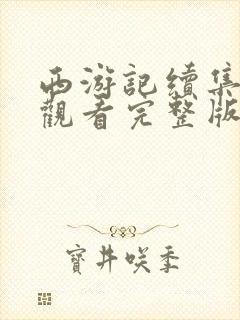 西游記續集
觀看完整版
寶井咲季